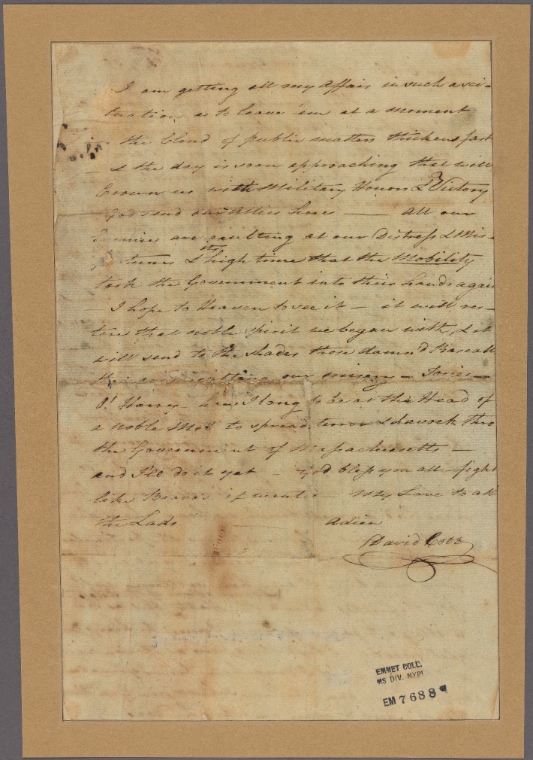 I am getting all my Affairs in such a sit-
uation as to leave 'em at a moment
the Cloud of public matters thickens fast
& the day is soon approaching that will
Crown us with Military Honors & Victory
God send our Allies here — All our
Enemies are exulting at our Distress & Mis-
fortunes tis high time that the Mobility
took the Government into their hands again
— I hope to Heaven to see it — it will res-
tore that noble spirit we began with, & it
will send to the Shades those damn'd Rascals
that are our misery —
O! Harry how I long to be at the Head of
a noble Mob to spread terror & havock thro
the Government of Massachusetts —
and I'll do it yet — God bless you all — fight
like Braves if — My Love to all
the Lads Adieu
David Cobb
EMMET COLL.
MS DIV. NYPL
EM 7688